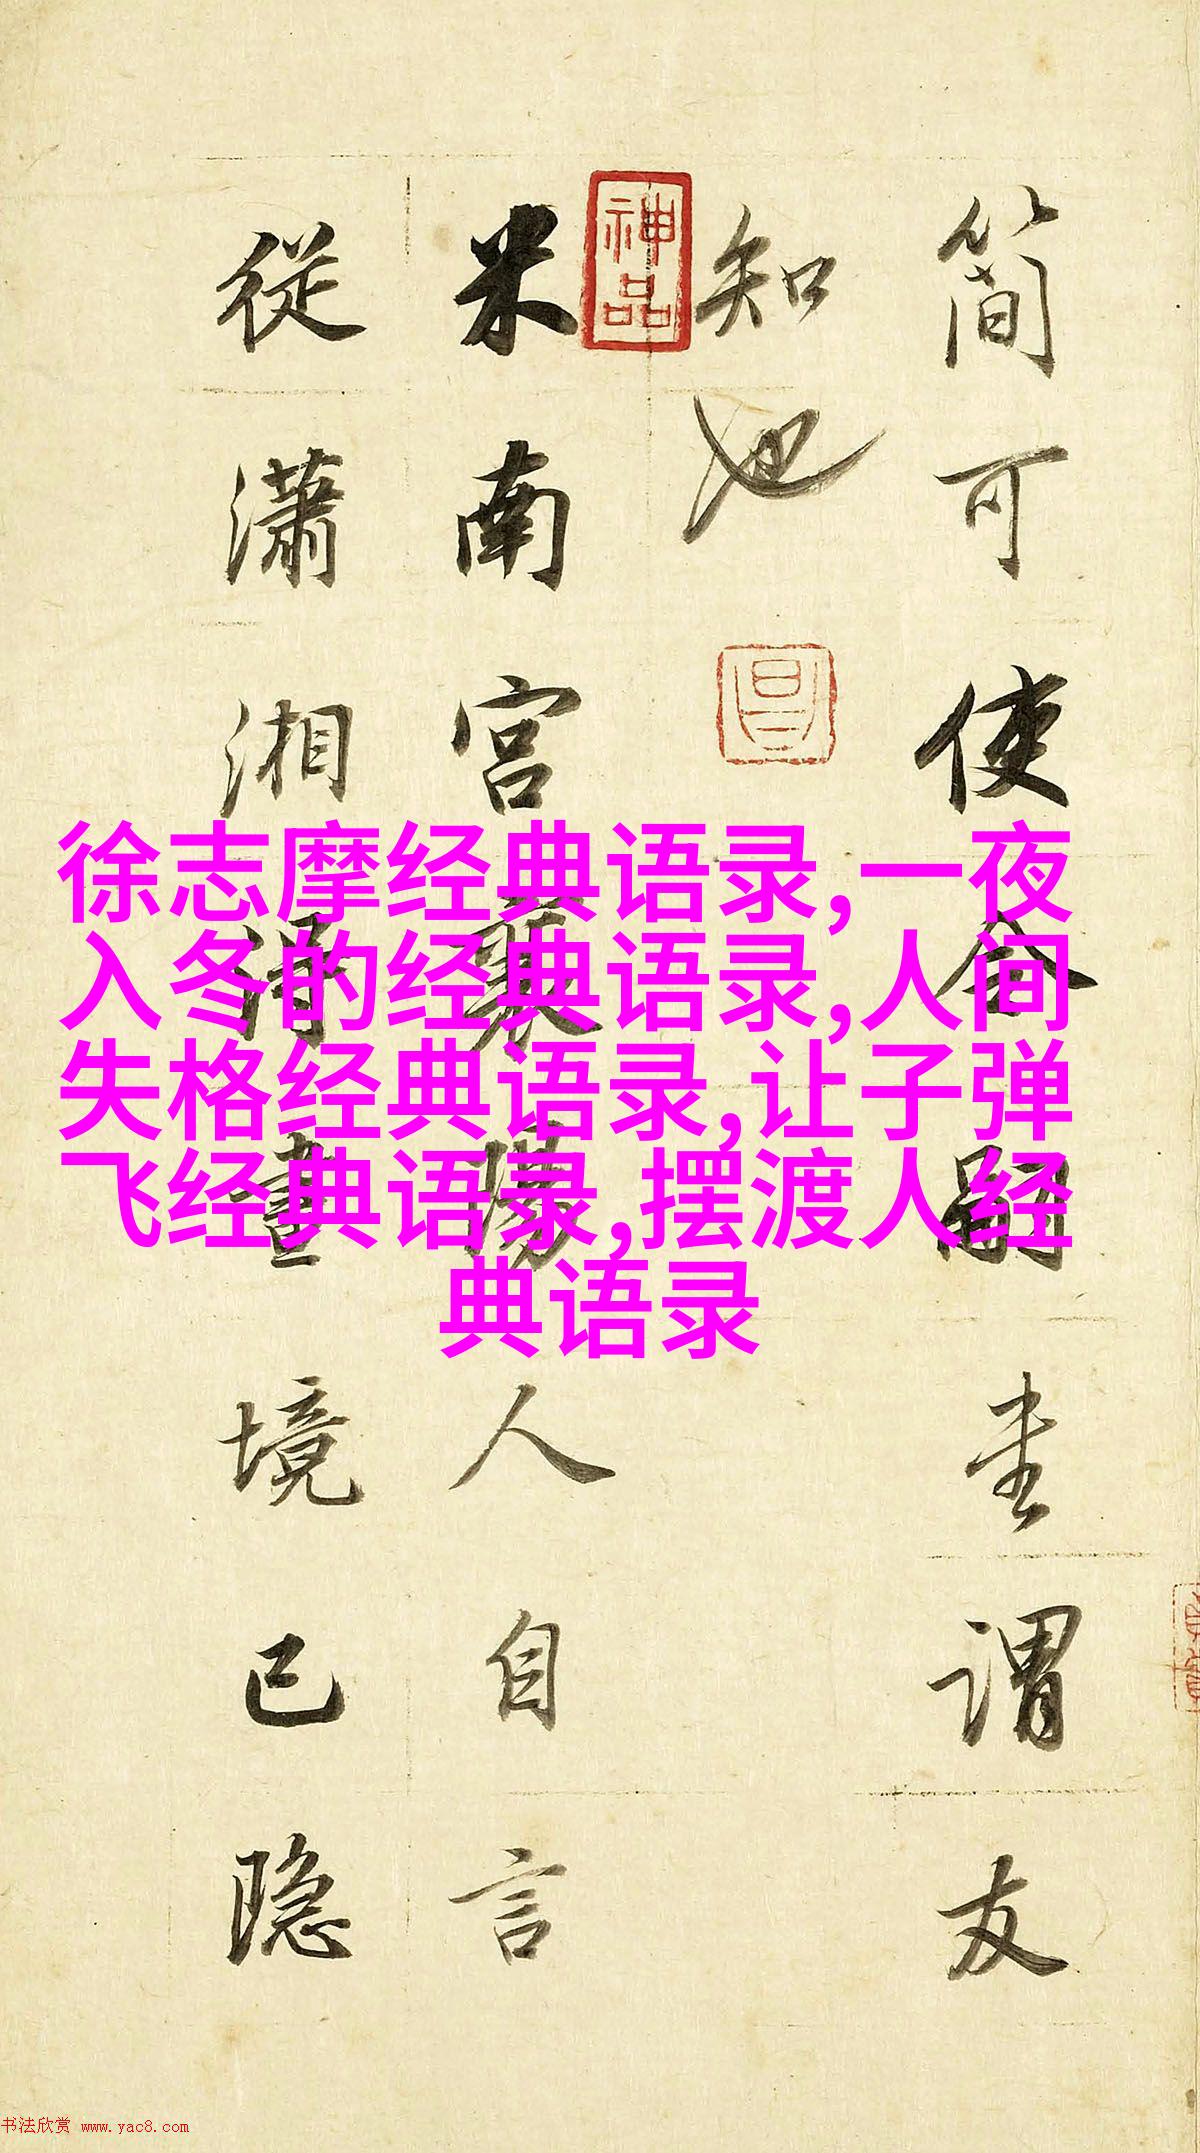 简可使嗣謂友
知也
神品
米南宮襄陽人自言
從瀟湘得畫境已隐
徐志摩经典语录,一夜
入冬的经典语录,人间
失格经典语录,让子弹
飞经典语录,摆渡人经
典语录
书法欣赏 www.yac8.com